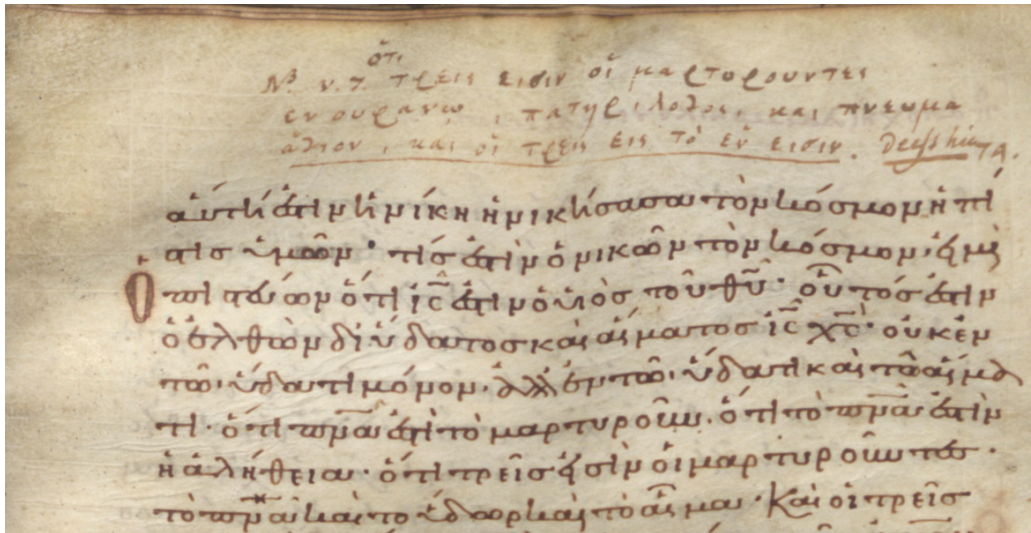 ὅτι
Nᵃ ν. 7 τρεις εισιν οἱ μαρτορουντες
εν ουρανω, πατηρ, λογος, και πνεωμα
ἁγιον, και οἱ τρεις εις τὸ ἑν εισιν.
αὐτη ἐστὶν ἡ νίκη ἡ νικήσασα τὸν κόσμον ἡ πί
στις ὑμῶν· τίς ἐστὶν ὁ νικῶν τὸν κόσμον· εἰ μὴ
ὁ πιστεύων ὅτι ἰς̅ ἐστὶν ὁ υἱὸς τοῦ θυ̅· οὗτός ἐστιν
ὁ ἐλθὼν δι ὕδατος καὶ αἵματος ἰς̅ χς̅· οὐκ ἐν
τῶ ὕδατι μόνον· ἀλλ ἐν τῶ ὕδατι καὶ τῶ αἵμα
τι· ὅτι τὸ πνα̅ ἐστὶ τὸ μαρτυροῦν· ὅτι τὸ πνα̅ ἐστὶν
ἡ ἀλήθεια· ὅτι τρεῖς εἰσὶν οἱ μαρτυροῦντες·
τὸ πνα̅ καὶ το ὕδωρ καὶ τὸ αἷμα· Καὶ οἱ τρεῖς